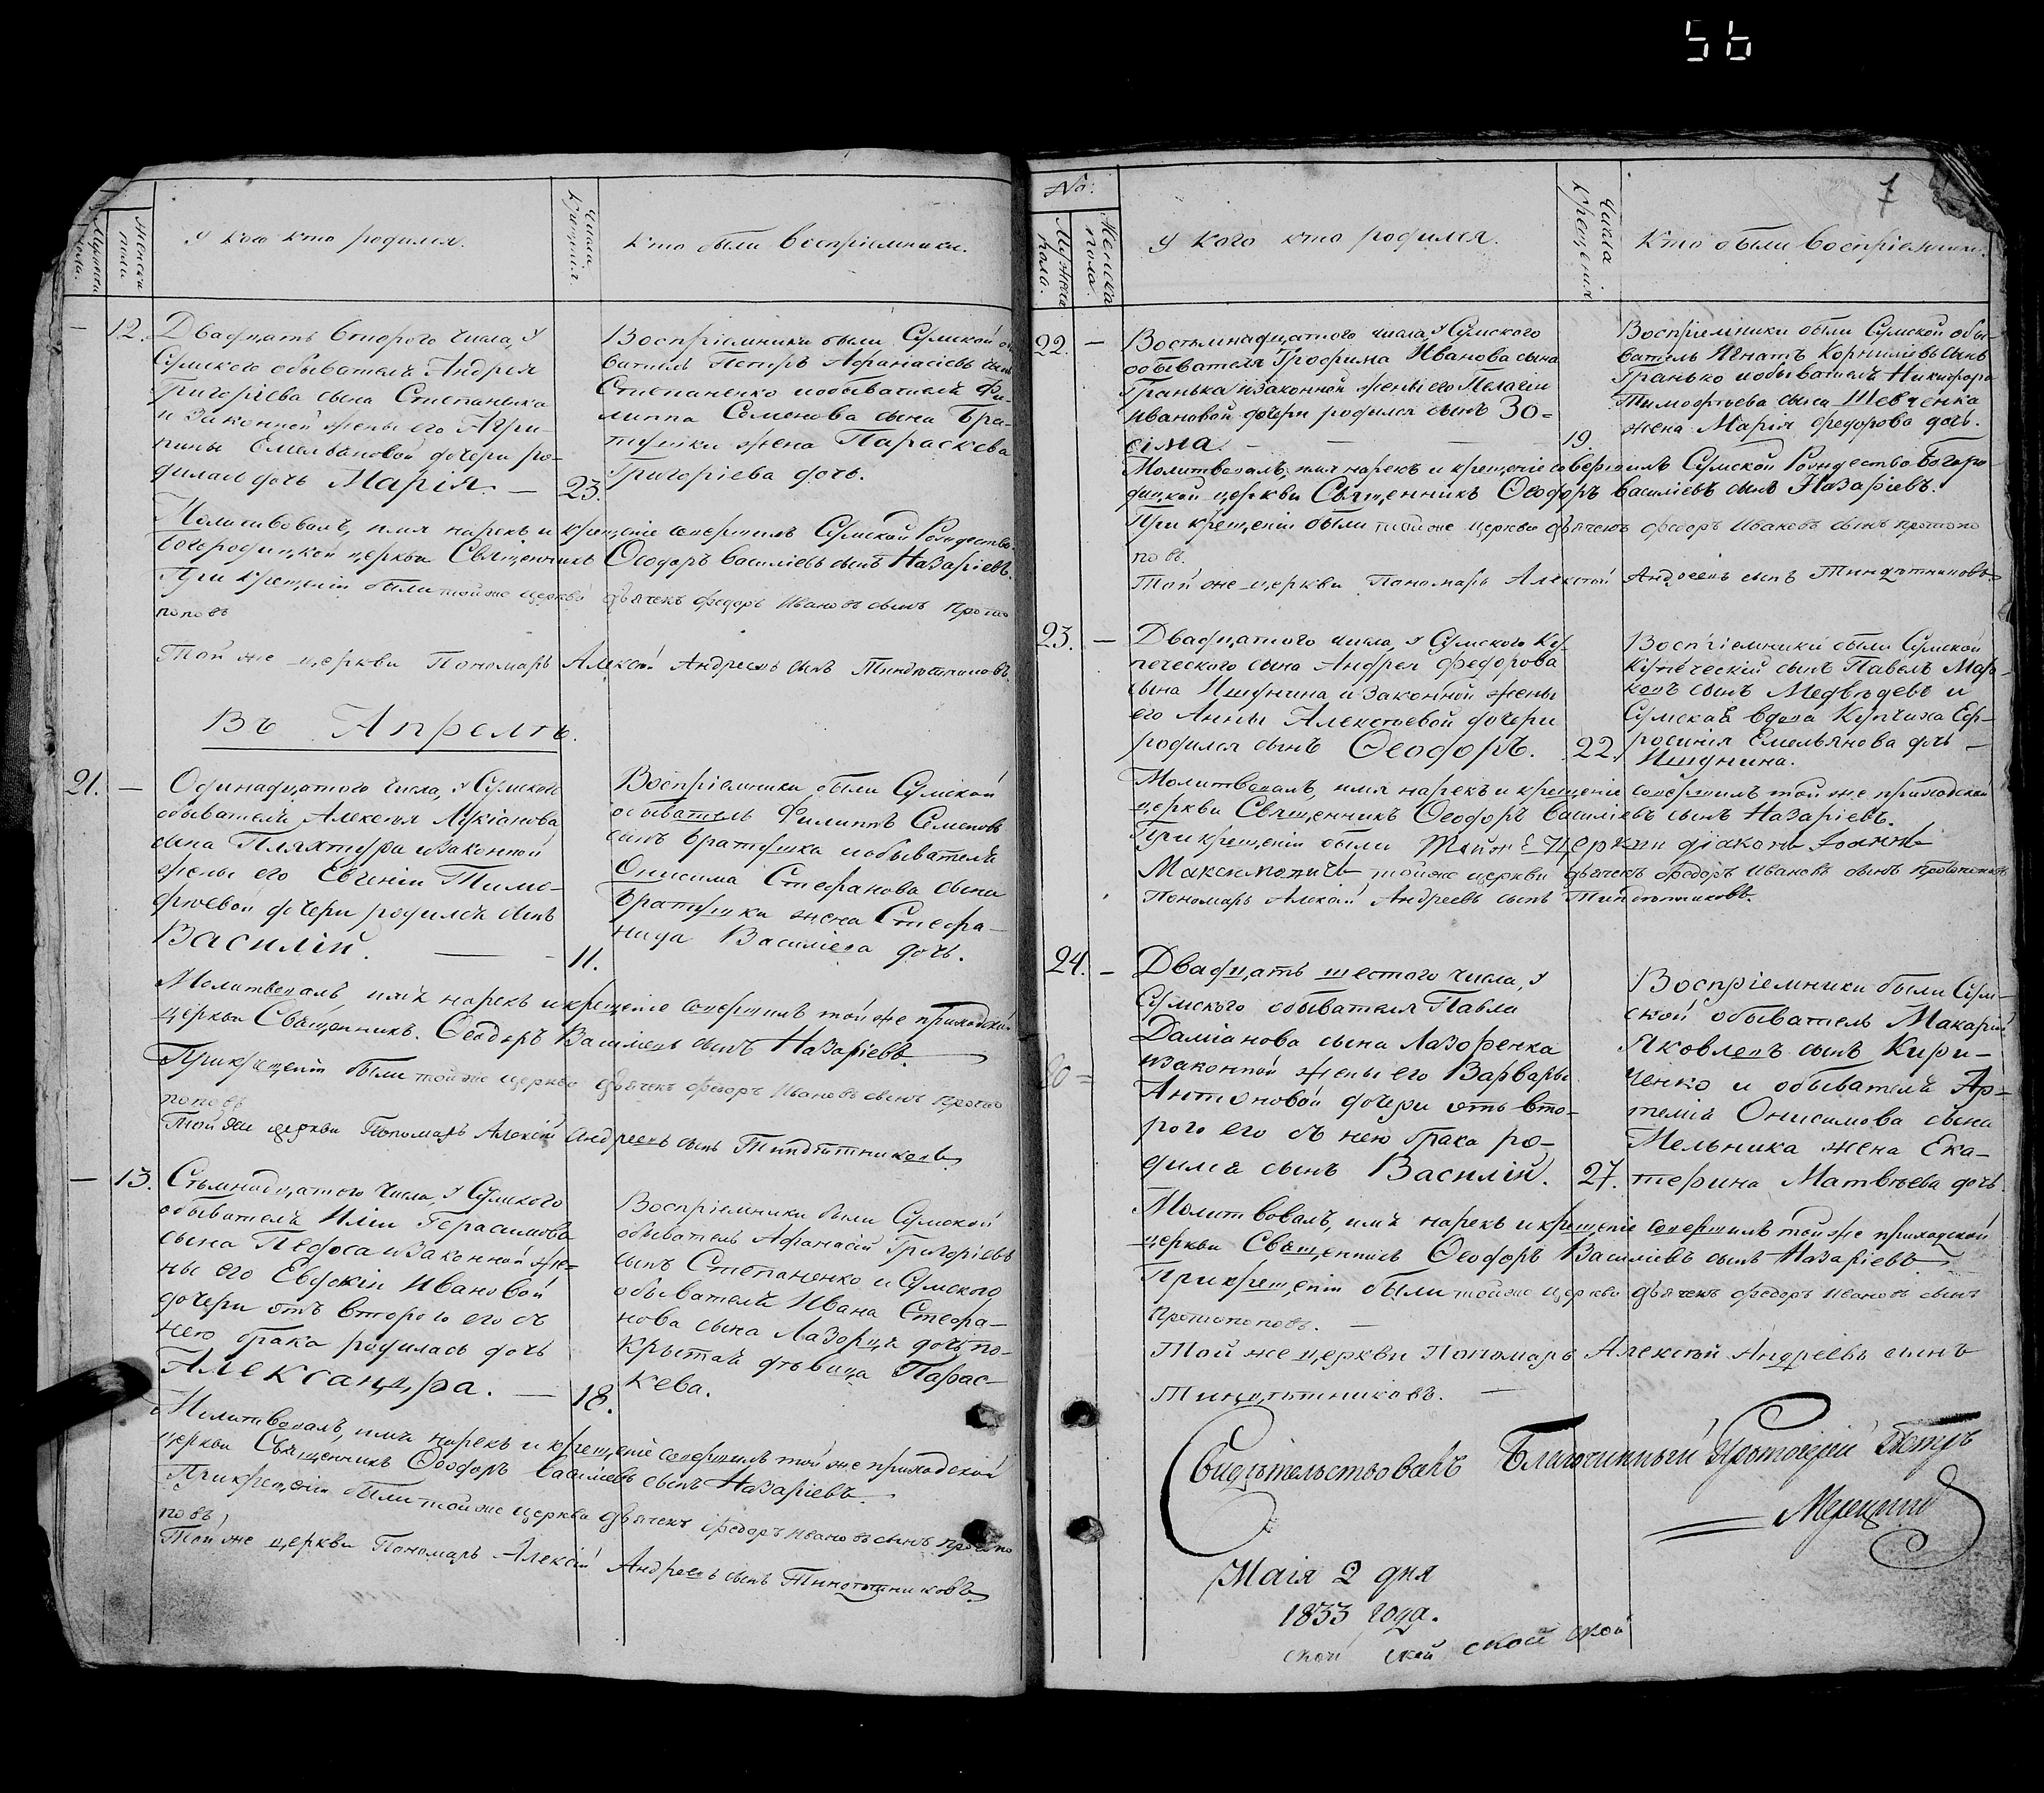 56
Мужеска пола.
Женска пола
У кого кто родился.
Числа крещенія
Кто были воспріемники.
— 12. Двадцать втораго числа, у
Сумского обывателя Андрея
Григоріева сына Степаненка
и законной жены его Агри-
пины Емельяновой дочери ро-
дилась дочь Марія. — 23.
Воспріемники были Сумской об
ватель Петръ Афанасіевъ сынъ
Степаненко и обывателя Фи-
липпа Семенова сына Бра-
тушки жена Параскева
Григоріева дочь.
Молитвовалъ, имя нарекъ и крещеніе совершилъ Сумской Рождество-
Богородицкой церкви Священникъ Ѳеодоръ Василіевъ сынъ Назаріевъ.
При крещеніи были той же церкви дьячекъ Федоръ Ивановъ сынъ Прото
поповъ
Той же церкви Пономарь Алексѣй Андреевъ сынъ
Въ Апрелѣ.
21. — Одинадцатого числа, у Сумского
обывателя Алексѣя Лукіанова
сына Пляхтура и законной
жены его Евгеніи Тимо-
фѣевой дочери родился сынъ
Василій. — 11.
Воспріемники были Сумской
обыватель Филиппъ Семеновъ
сынъ Братушка и обывателя
Онисима Стефанова сына
Братушки жена Стефа-
нида Василіева дочь.
Молитвовалъ, имя нарекъ и крещеніе совершилъ той же приходской
церкви Священникъ Ѳеодоръ Василіевъ сынъ Назаріевъ.
При крещеніи были той же церкви дьячекъ Федоръ Ивановъ сынъ Прото
поповъ
Той же церкви Пономарь Алексѣй Андреевъ сынъ
— 13. Семьнадцатого числа, у Сумского
обывателя Иліи Герасимова
сына Педоса и законной же-
ны его Евдокіи Ивановой
дочери отъ второго его съ
нею брака родилась дочь
Александра. — 18.
Воспріемники были Сумской
обыватель Афанасій Григоріевъ
сынъ Степаненко и Сумского
обывателя Ивана Стефа-
нова сына Лазорця дочь по-
крытая дѣвица Парас-
кева.
Молитвовалъ, имя нарекъ и крещеніе совершилъ той же приходской
церкви Священникъ Ѳеодоръ Василіевъ сынъ Назаріевъ.
При крещеніи были той же церкви дьячекъ Федоръ Ивановъ сынъ прото
повъ,
Той же церкви Пономарь Алексій Андреевъ сынъ
7
No:
Мужеска пола.
Женска пола.
У кого кто родился.
Числа крещенія
Кто были воспріемники.
22. — Восемьнадцатого числа, у Сумского
обывателя Трофима Иванова сына
Гранька и законной жены его Пелагіи
Ивановой дочери родился сынъ Зо-
сіма. — — — 19.
Воспріемники были Сумской обы-
ватель Игнатъ Корниліевъ сынъ
Гранько и обывателя Никифора
Тимофѣева сына Шевченка
жена Марія Федорова дочь.
Молитвовалъ, имя нарекъ и крещеніе совершилъ Сумской Рождество-Богоро
дицкой церкви Священникъ Ѳеодоръ Василіевъ сынъ Назаріевъ.
При крещеніи были той же церкви дьячекъ Федоръ Ивановъ сынъ протопо
повъ.
Той же церкви Пономарь Алексѣй Андреевъ сынъ
23. — Двадцатого числа, у Сумского Ку-
печеского сына Андрея Федорова
сына Ишунина и законной жены
его Анны Алексѣевой дочери
родился сынъ Ѳеодоръ. 22.
Воспріемники были Сумской
купеческій сынъ Павелъ Мар-
ковъ сынъ Медвѣдевъ и
Сумская вдова Купчиха Еф-
росинія Емельянова дочь —
Ишунина.
Молитвовалъ, имя нарекъ и крещеніе совершилъ той же приходской
церкви Священникъ Ѳеодоръ Василіевъ сынъ Назаріевъ.
При крещеніи были той же церкви діаконъ Іоаннъ
Максимовичъ той же церкви дьячекъ Федоръ Ивановъ сынъ Протопоповъ
Пономарь Алексѣй Андреевъ сынъ
24. — Двадцать шестого числа, у
Сумского обывателя Павла
Даміанова сына Лазоренка
и законной жены его Варвары
Антоновой дочери отъ вто-
рого его съ нею брака ро-
дился сынъ Василій. 27.
Воспріемники были Сум-
ской обыватель Макарій
Яковлевъ сынъ Кири-
ченко и обывателя Ар-
темія Онисимова сына
Мельника жена Ека-
терина Матвѣева дочь.
Молитвовалъ, имя нарекъ и крещеніе совершилъ той же приходской
церкви Священникъ Ѳеодоръ Василіевъ сынъ Назаріевъ
При крещеніи были той же церкви дьячекъ Федоръ Ивановъ сынъ
Протопоповъ. —
Той же церкви Пономарь Алексѣй Андреевъ сынъ
Свидѣтельствовалъ Благочинный Протоіерей Петръ
Маія 2 дня
1833 года.
ской ской ской ской